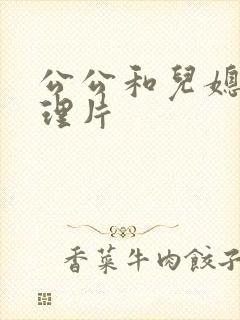 公公和兒媳
理片
香菜牛肉餃子